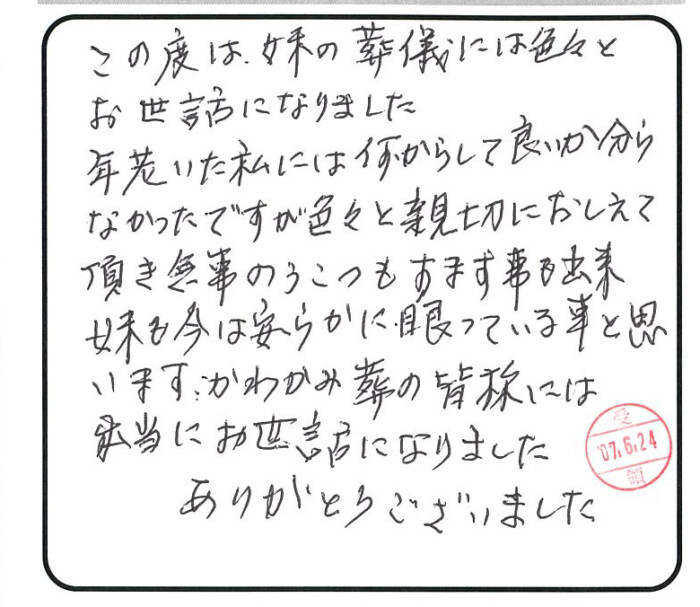 この度は、妹の葬儀には色々と
お世話になりました
年老いた私には何からして良いか分ら
なかったですが色々と親切におしえて
頂き無事のうこつもすます事も出来
妹も今は安らかに眠っている事と思
います。かわかみ葬の皆様には
本当にお世話になりました
ありがとうございました
受
'07.6.24
領